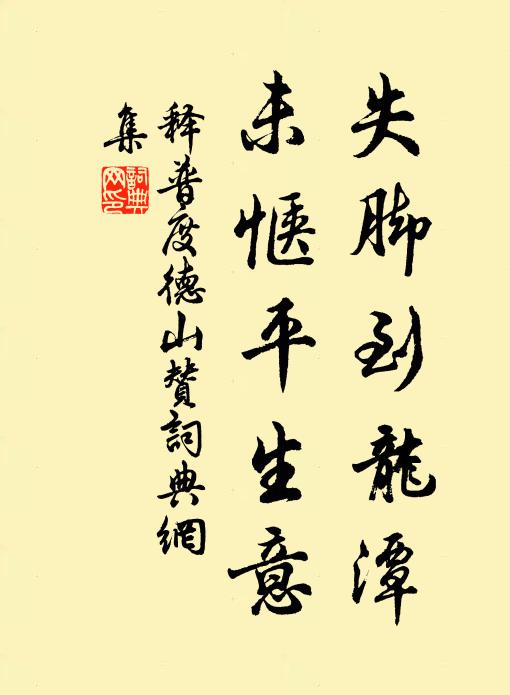 失脚到龍潭
未惬平生意
释普度德山贊詞典網
集
詞典網印